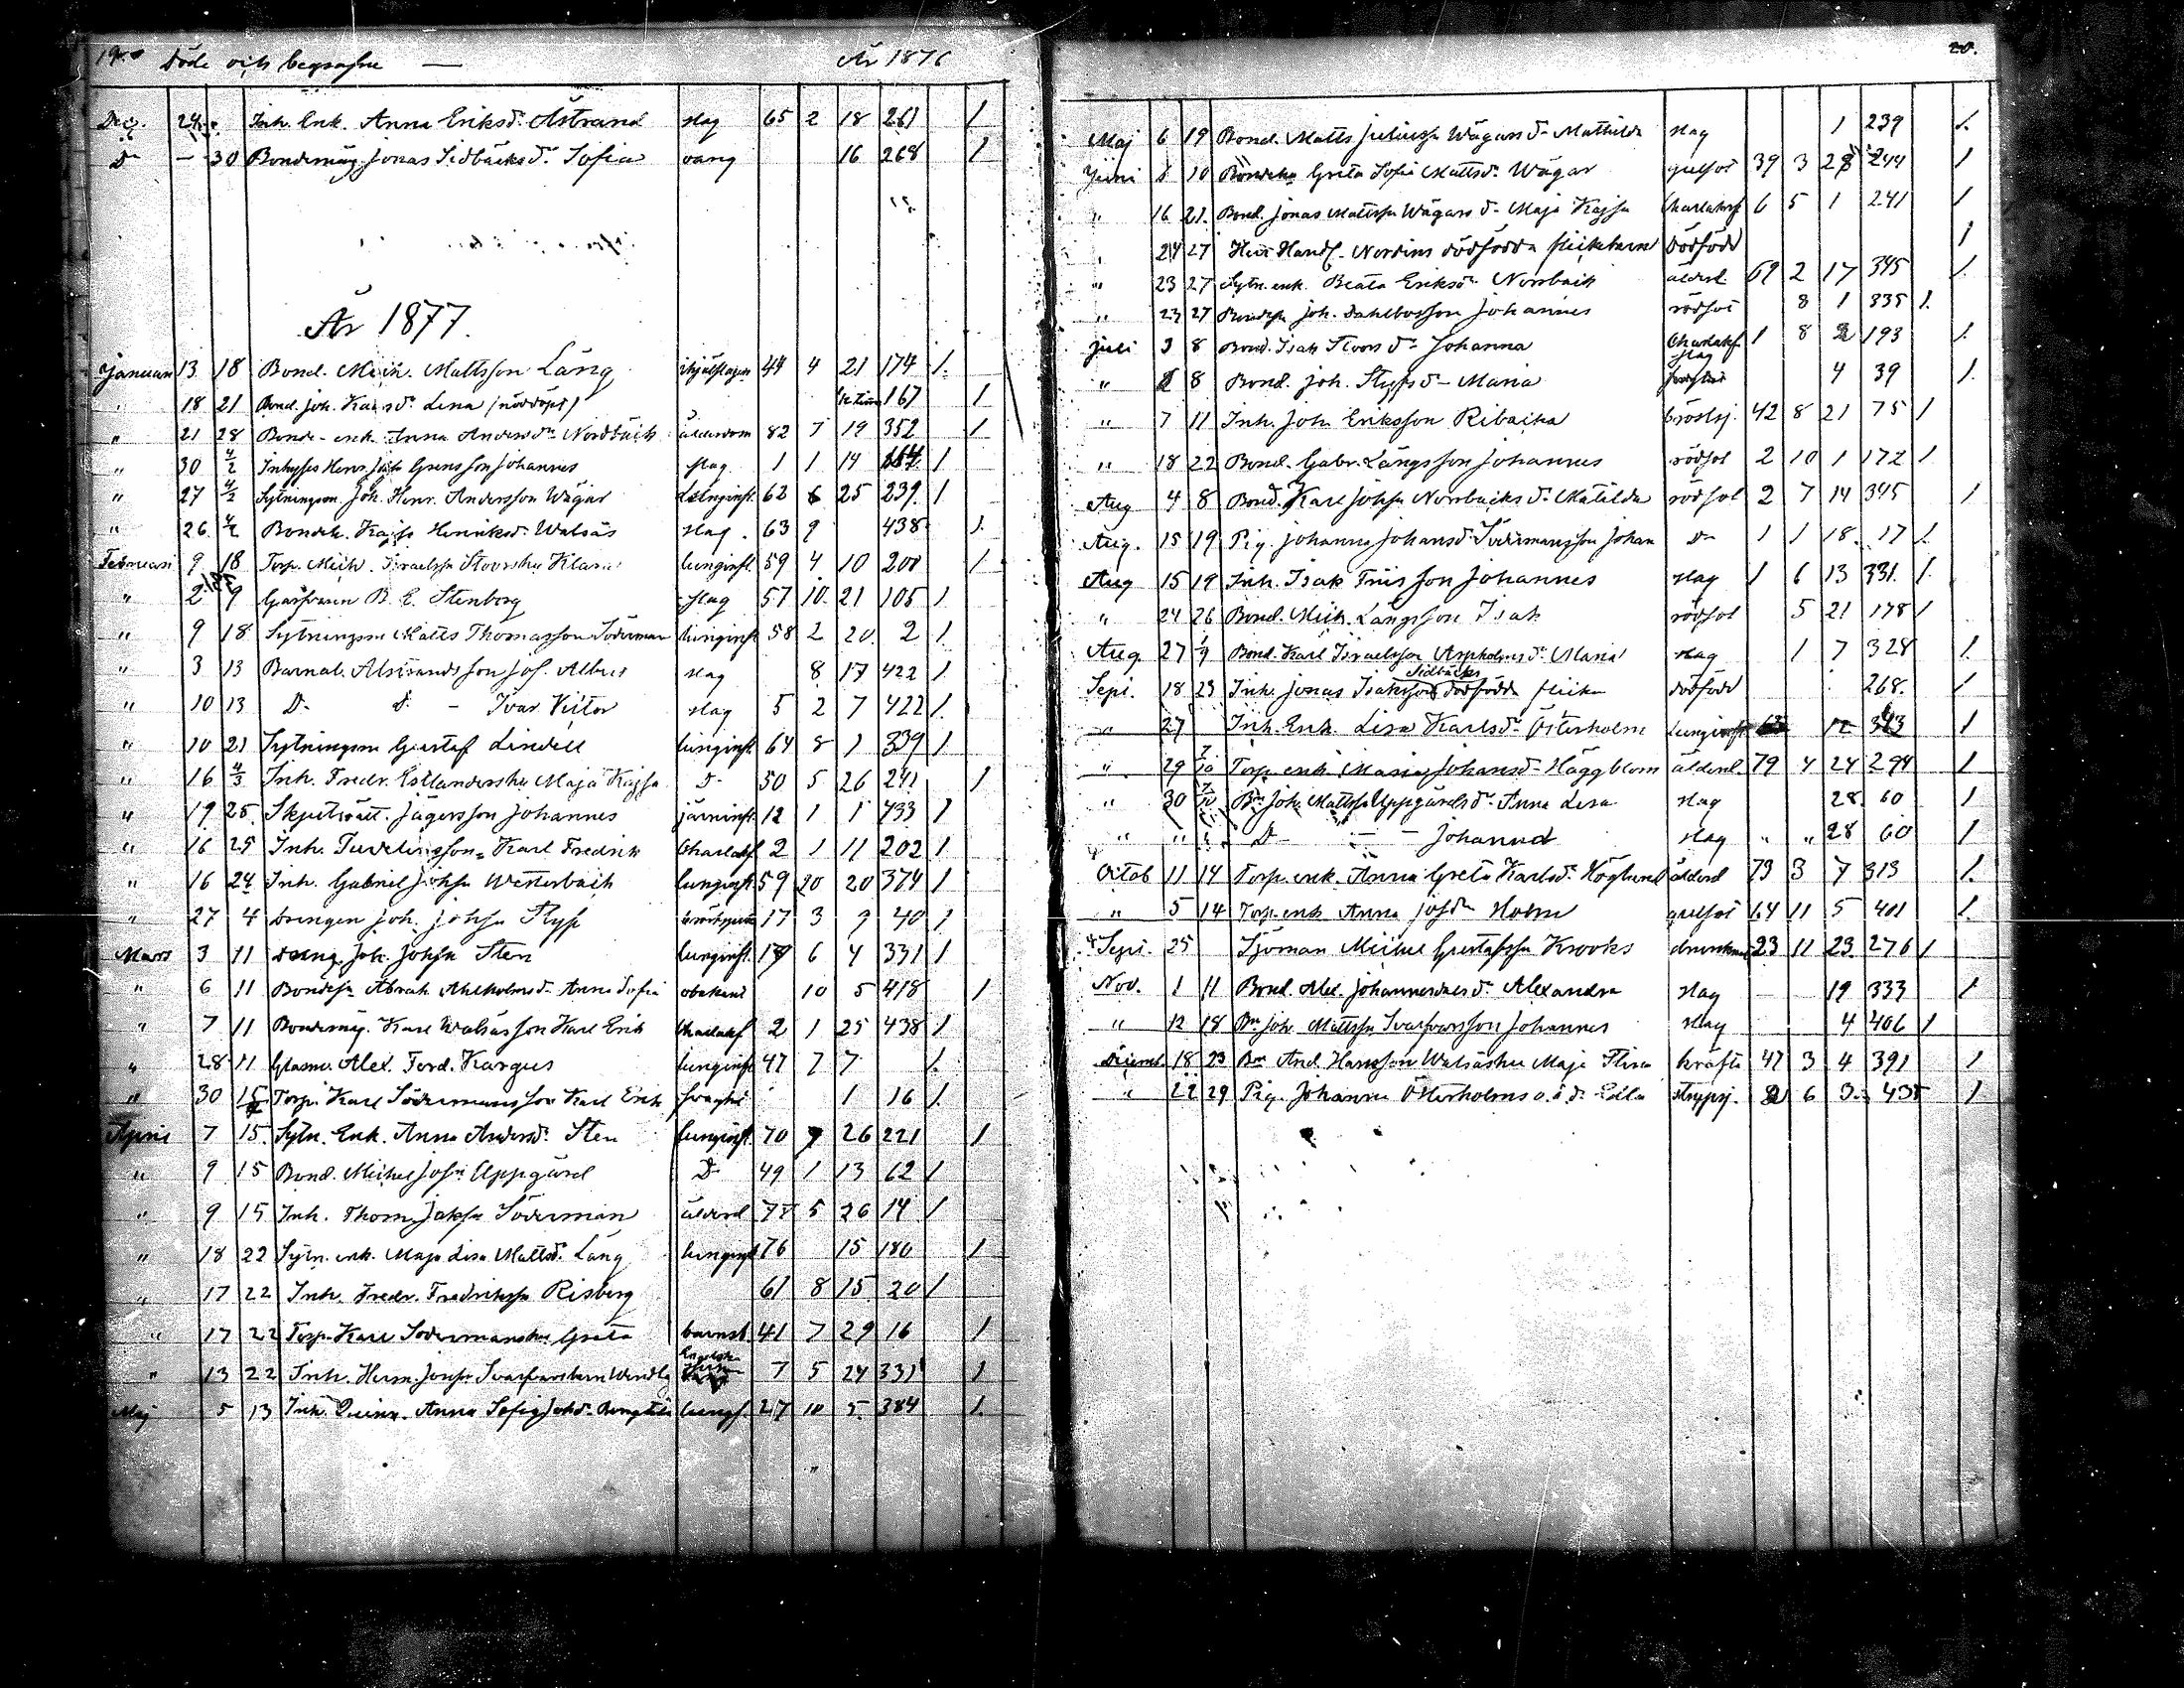 19. Döde och begrafne — År 1876
Dec. 24 Inh. Enk. Anna Eriksdr. Åstrand slag 65 2 18 261 1
Dr — 30 Bondemåg Jonas Sidbäcks dr Sofia 16 268 1
År 1877.
Januari 13 18 Bond. Mich. Mattsson Lång ihjälslagen 44 4 21 174 1.
" 18 21 Bond. Joh. dr Lena (nöddöpt) 167 1
" 21 28 Bonde-enk. Anna Anders dr Nordbäck ålderdom 82 7 19 352 1
" 30 4/2 Inhyses Henr. Grens son Johannes slag 1 1 14 1
" 27 4/2 Sytningsm. Joh. Henr. Andersson Wägar Lunginfl. 62 6 25 239. 1
" 26 4/2 Bondeh. Kajsa Henriksdr. Walsäs slag. 63 9 438 1.
Februari 9 18 Torp. Mich. Israelss Stoorshu Klara lunginfl. 59 4 10 200 1
" 2 9 Garfvaren B. E. Stenborg slag 57 10. 21 105 1
" 9 18 Sytningsm Matts Thomasson Söderman lunginfl 58 2 20. 2 1.
" 3 13 Barnal. Alstrands son Jos. Albert slag 8 17 422 1.
" 10 13 D- d- — Ivar Victor slag 5 2 7 422 1.
" 10 21 Sytningsm Gustaf Lindell lunginfl. 64 8 1 339 1
" 16 4/3 Inh. Fredr. Estlandershu Maja Kajsa D- 50 5 26 241 1
" 19 25 Skjutsrätt. Jägersson Johannes järninfl. 12 1 1 433 1
" 16 25 Inh. son Karl Fredrik Charlakf 2 1 11 202 1
" 16 24 Inh. Gabriel Johss Westerback lunginfl. 59 20 20 374 1
" 27 4 Drengen Joh. Johss Styss 17 3 9 40 1
Mars 3 11 Dreng. Joh. Johss Sten lunginfl. 6 4 331 1
" 6 11 Bondess Abrah. Ahlholms dr Anna Sofia obekand 10 5 418 1
" 7 11 Bondemåg. Karl Walsäs son Karl Erik Charlakf 2 1 25 438 1
" 28 11 Glasm. Alex. Ferd. Kargus lunginfl 47 7 7 1.
" 30 15 Torp. Karl Södermans son Karl Erik svaghet 1 16 1.
April 7 15. Sytn. Enk. Anna Andersdr. Sten lunginfl. 70 26 221 1
" 9 15 Bond. Michel Johss Uppgård D- 49 1 13 62 1
" 9 15 Inh. Thom. Jakss Söderman ålderd 5 26 14 1
" 18 22 Sytn. enk. Maja Lisa Mattsdr. Lång lunginfl 76 15 180 1
" 17 22 Inh. Fredr. Fredrikss Risberg 61 8 15. 20 1
" 17 22 Torp. Karl Södermanshu Greta barnsb. 41 7 29 16 1
" 13 22 Inh. Herm. Johss Svarfvars barn 7 5 24 331 1
Maj 5 13 Inh. Qvinn. Anna Sofia Johdr lungs. 27 10 5. 384 1.
20.
Maj 6 19 Bond. Matts Juliuss Wägars dr Mathilda slag 1 239 1.
Juni 8 10 Bondehu Greta Sofia Mattsdr Wägar gulsot 39 3 28 244 1
" 16 21. Bond. Jonas Mattss Wägars dr Maja Kajsa Charlakf 6 5 1 241 1
" 24 27 Herr Handl. Nordins dödfödda flickebarn Dödfödd 1
" 23 27 Sytn. enk. Beata Eriksdr Norrback ålderd. 69 2 17 345 1.
" 23 27 Bondess Joh. Dahlbos son Johannes rödsot 8 1 335 1.
Juli 3 8 Bond. Isak Stoors dr Johanna Charlakf 1 8 193 1.
" 8 Bond. Joh. Styss dr Maria slag 4 39 1.
" 7 11 Inh. Joh. Eriksson Ribacka bröstsj. 42 8 21 75 1
" 18 22 Bond. Gabr. Långs son Johannes rödsot 2 10 1 172 1
Aug 4 8 Bond. Karl Johss Norrbacks dr Matilda rödsot 2 7 14 345 1
Aug. 15 19 Pig. Johanna Johansdr Södermans son Johan D- 1 1 18. 17 1.
Aug 15 19 Inh. Isak Friis son Johannes slag 1 6 13 331. 1.
" 24 26 Bond. Mich. Långs son Isak rödsot 5 21 178 1
Aug. 27 1/9 Bond. Karl Israelsson Aspholms dr Maria slag 1 7 328 1.
Sept. 18 23 Inh. Jonas Isaksson Sidbäcks dödfödda flicka dödfödd 268. 1
" 27 Inh. Enk. Lisa Karlsdr Österholm Lunginfl 12 343 1
" 29 7/10 Torp. enk. Maria Johansdr Häggblom ålderd. 79 4 24 294 1.
" 30 7/10 Bn Joh. Mattss Uppgårds dr Anna Lisa slag 28. 60 1
" " " D- — — Johanna slag " " 28 60 1
Octob 11 14 Torp. enk. Anna Greta Karlsdr Höglund ålderd 73 3 7 313 1.
" 5 14 Torp. enk Anna Josdr Holm gulsot 64 11 5 401 1.
Sept. 25 Sjöman Michel Gustafsson Krooks drunknad 23 11 23. 276 1
Nov. 1 11 Bond. Alex. Johannesdals dr Alexandra slag 19 333 1
" 12 18 Bn Joh. Mattss Svarfvars son Johannes slag 4 406 1
Decemb. 18 23 Bn And. Hansson Walsäshu Maja Stina kräfta 47 3 4 391 1
" 22 29 Pig. Johanna Österholms o.ä.dr Edla strypsj. 2 6 3 435 1